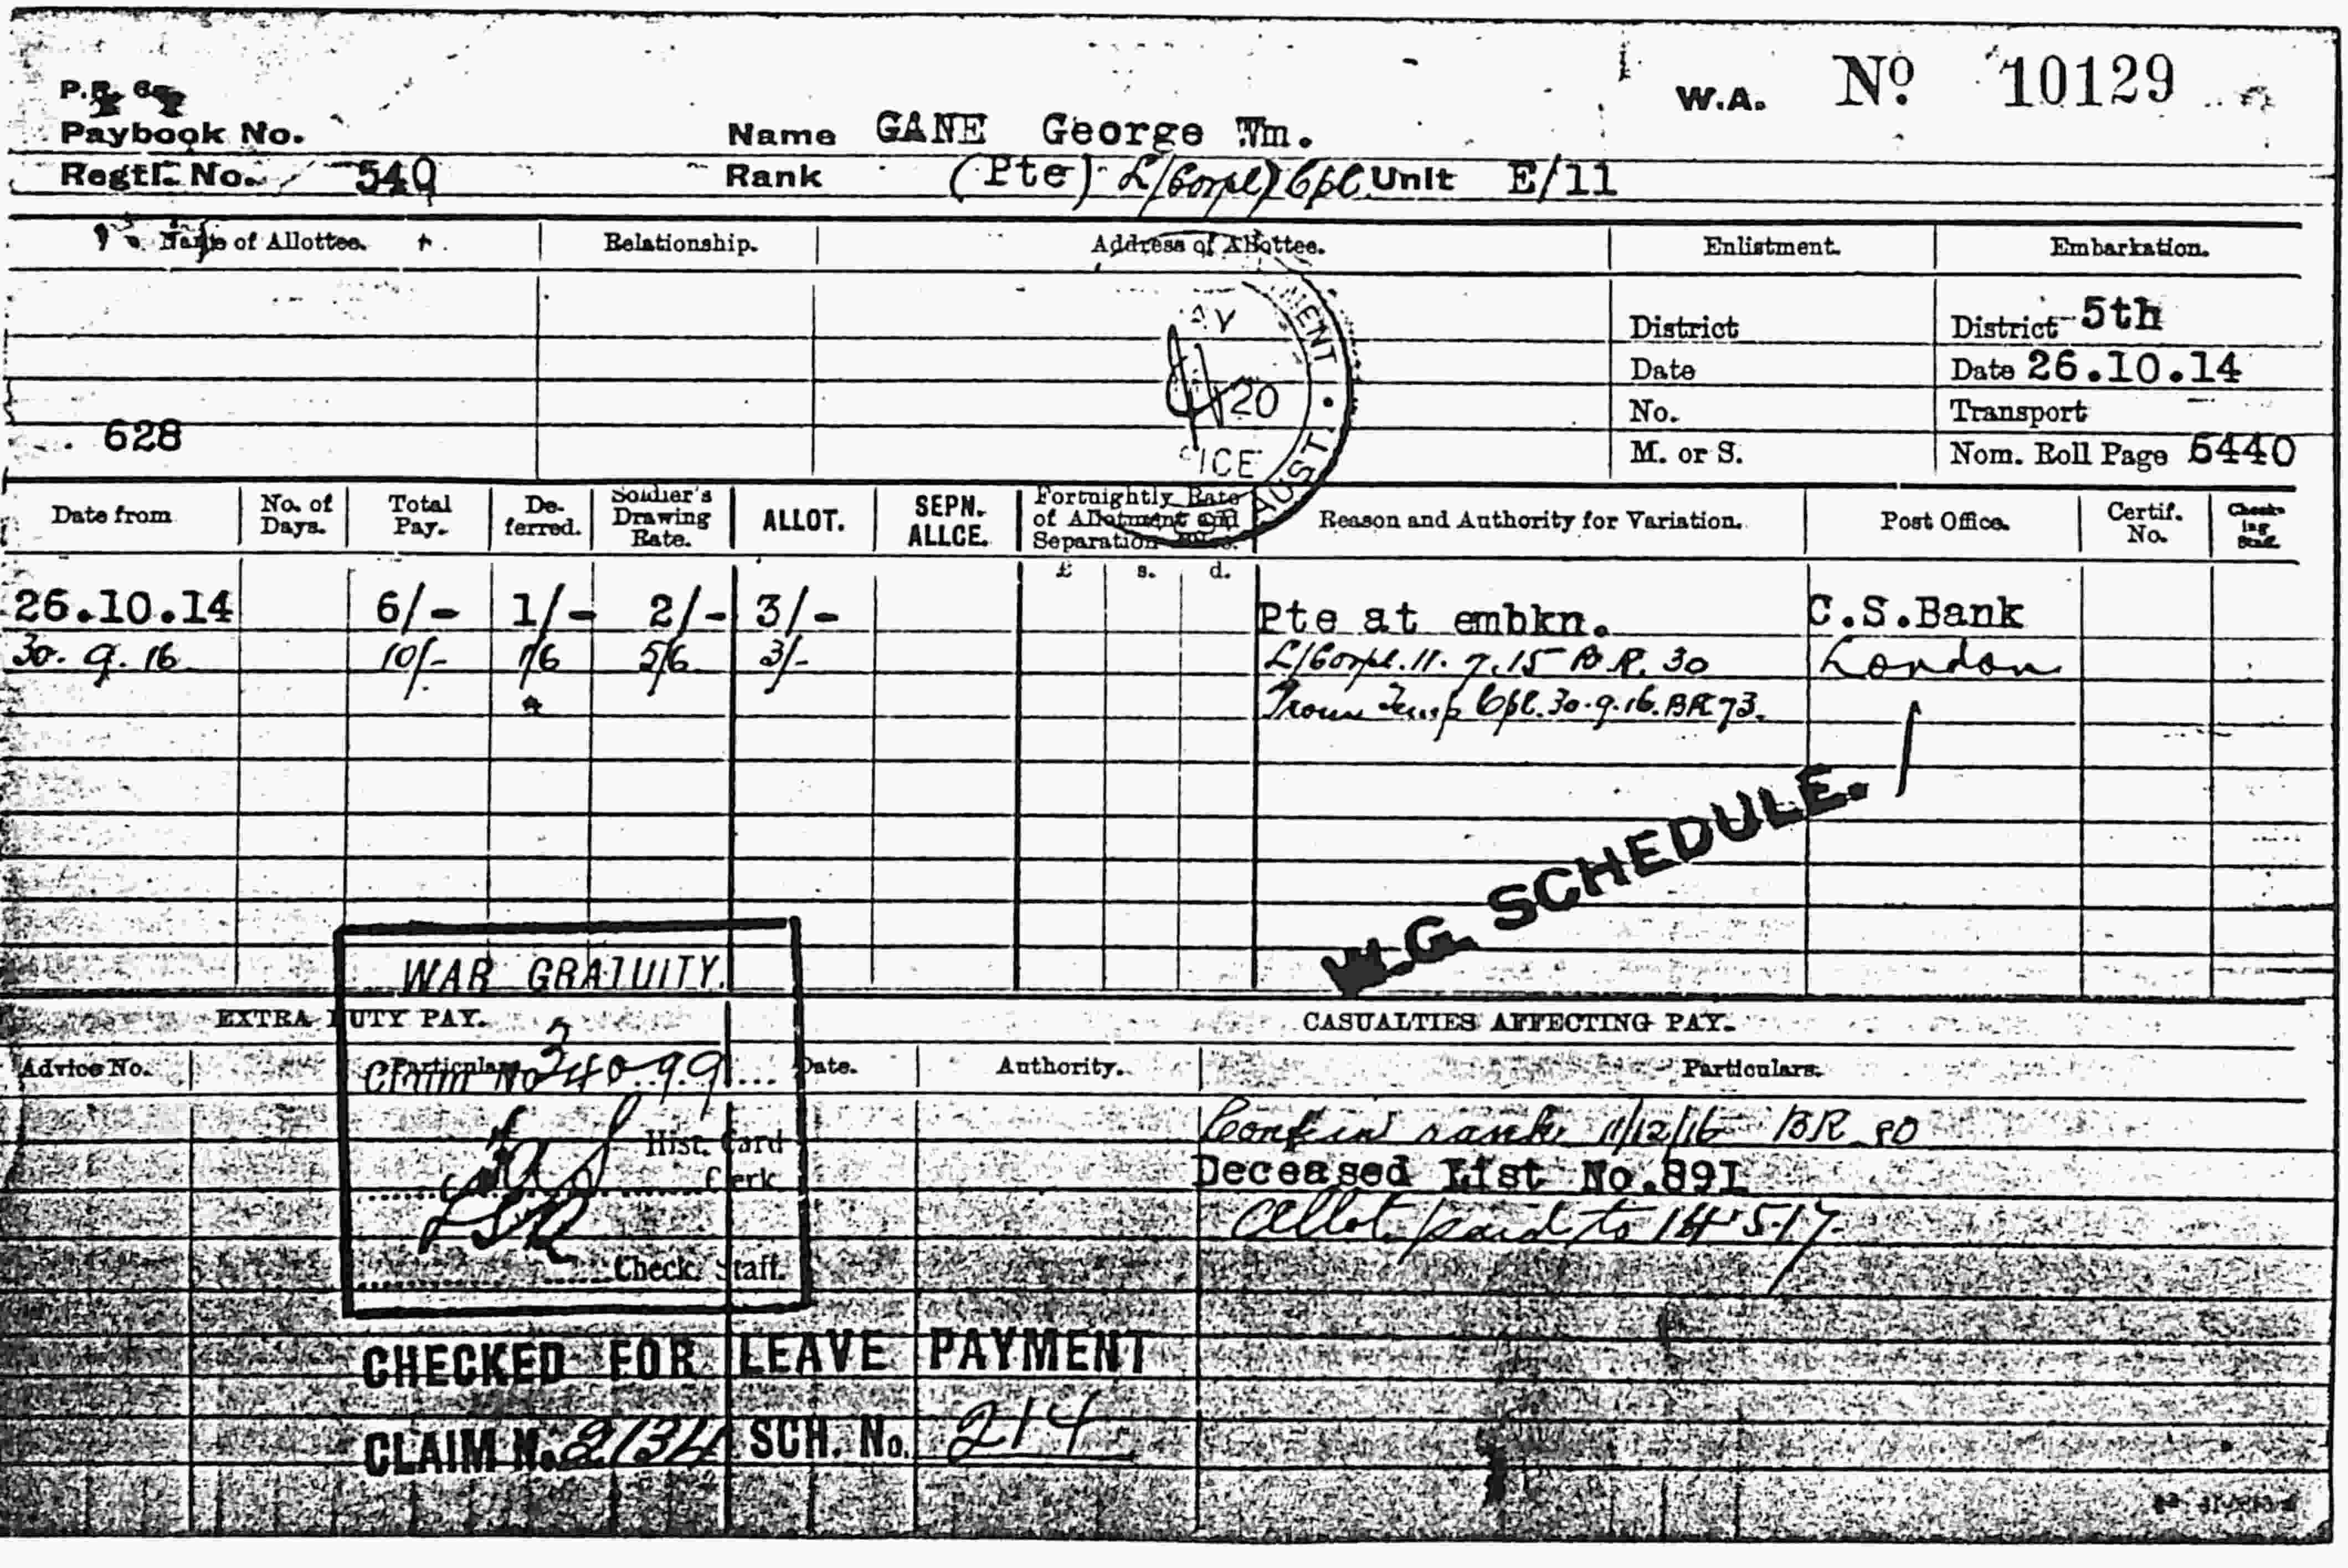 W.A. No 10129
Paybook No.
Name GANE George Wm.
Regtl. No. 540
Rank (Pte) L/Corpl) Cpl Unit E/11
Name of Allottee. Relationship. Address of Allottee. Enlistment. Embarkation.
District District 5th
Date Date 26.10.14
No. Transport
628
M. or S. Nom. Roll Page 6440
MENT
20
ICE
AUST.
Date from No. of Days. Total Pay. De-ferred. Soldier's Drawing Rate. ALLOT. SEPN. ALLCE. Fortnightly Rate of Allotment and Separation Reason and Authority for Variation. Post Office. Certif. No. Check-ing Staff.
£ s. d.
26.10.14 6/- 1/- 2/- 3/- Pte at embkn. C.S.Bank
30.9.16 10/- 1/6 5/6 3/- L/Corpl. 11.7.15 B.R. 30 London
Prom Temp Cpl. 30.9.16. BR 73.
W.G. SCHEDULE.
WAR GRATUITY.
EXTRA DUTY PAY. CASUALTIES AFFECTING PAY.
Advice No. Particulars Date. Authority. Particulars.
Claim No
Hist. Card Clerk
Check. Staff.
Conf in rank 11/12/16 BR 80
Deceased List No.891
Allot. paid to 14.5.17.
CHECKED FOR LEAVE PAYMENT
CLAIM No. 2134 SCH. No. 214